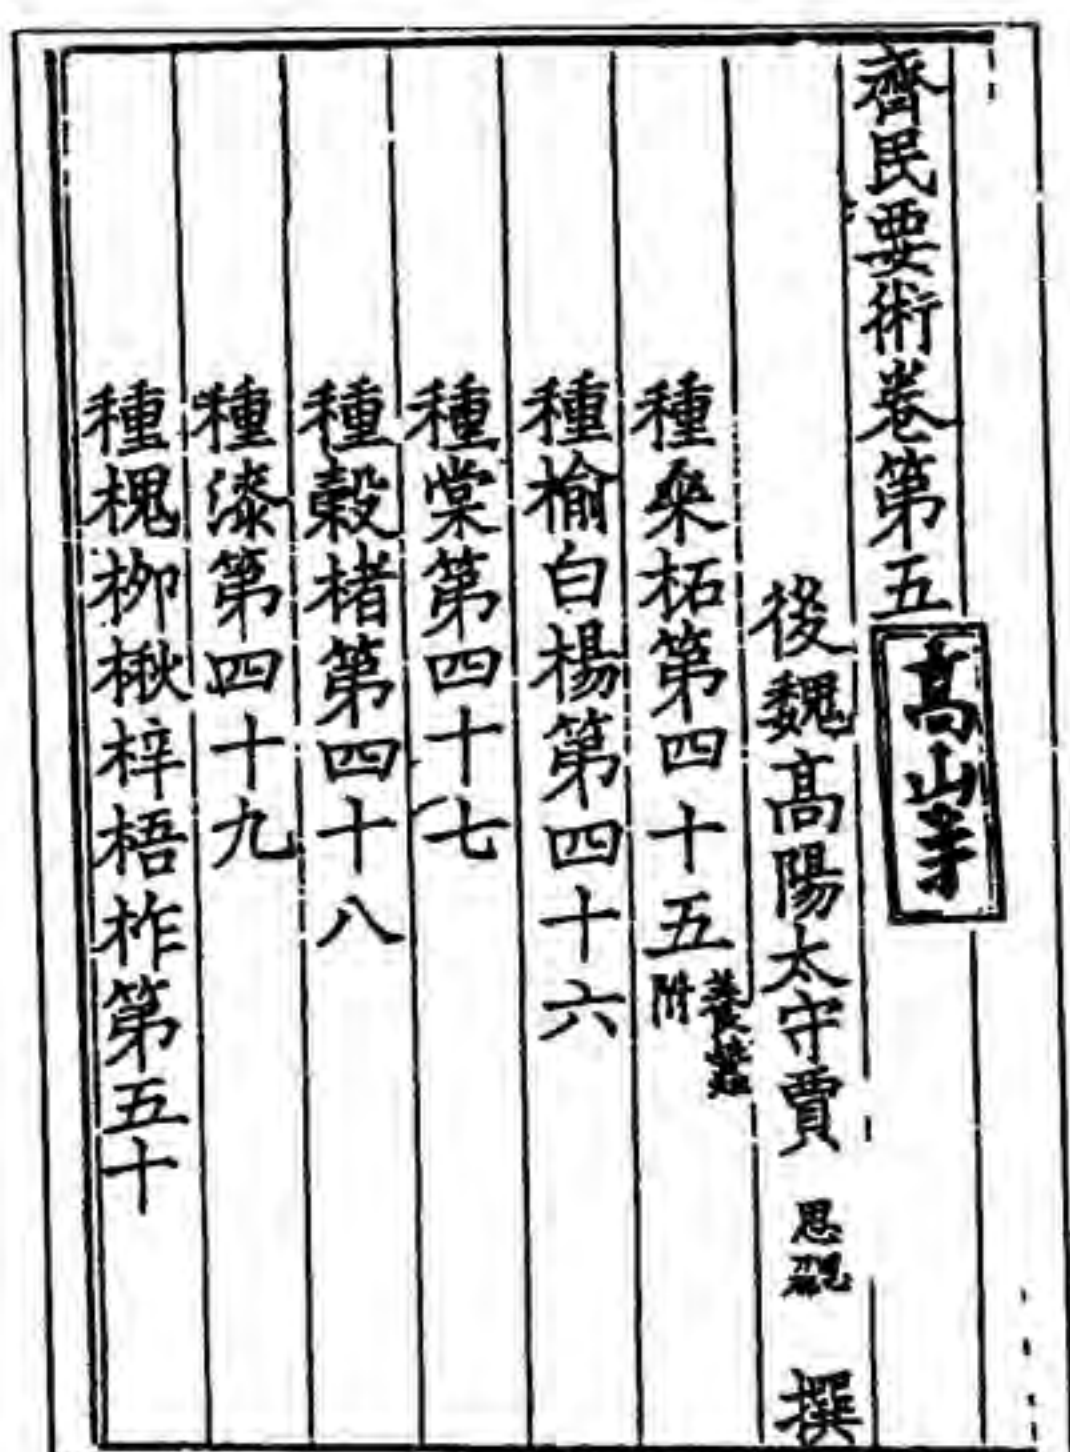 齊民要術卷第五
高山寺
後魏高陽太守賈思勰撰
種桒柘第四十五養蠶附
種榆白楊第四十六
種棠第四十七
種榖楮第四十八
種漆第四十九
種槐柳楸梓梧柞第五十